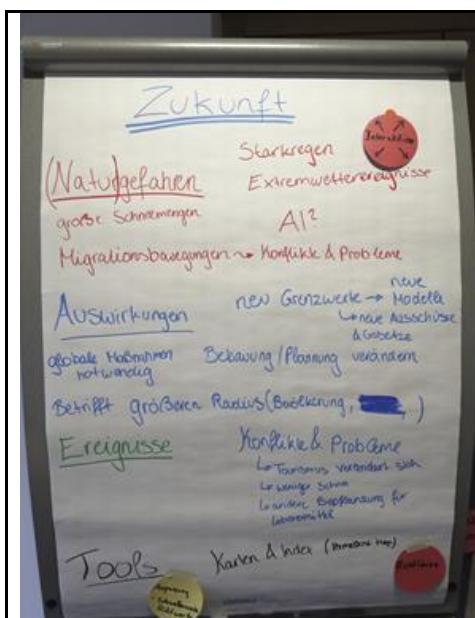 Zukunft
Interaktion
Starkregen
(Natur)gefahren
Extremwetterereignisse
große Schneemengen
AI?
Migrationsbewegungen → Konflikte & Probleme
Auswirkungen
neu Grenzwerte → neue Modelle
↳ neue Ausschüsse & Gesetze
globale Maßnahmen notwendig
Bebauung/Planung verändern
Betrifft größeren Radius (Bevölkerung, )
Ereignisse
Konflikte & Probleme
↳ Tourismus verändert sich
↳ weniger Schnee
↳ andere Bepflanzung für Lebensmittel
Tools
Karten & Index